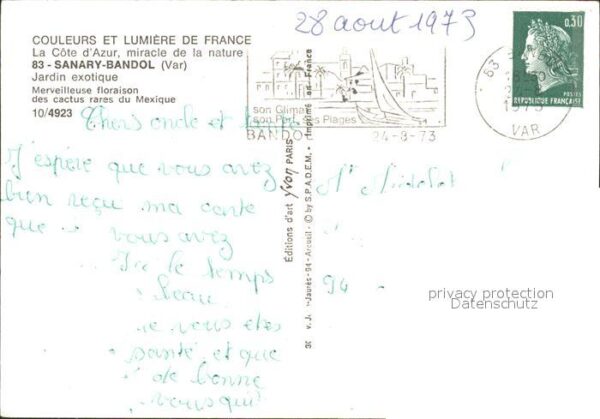 28 aout 1973
COULEURS ET LUMIÈRE DE FRANCE
La Côte d'Azur, miracle de la nature
83 - SANARY-BANDOL (Var)
Jardin exotique
Merveilleuse floraison
des cactus rares du Mexique
10/4923
0,30
POSTES
REPUBLIQUE FRANÇAISE
83
1973
VAR
son Climat
son Port ses Plages
BANDOL
24-8-73
Chers oncle et tante
J'espère que vous avez
bien reçu ma carte
que vous avez
le temps
beau.
vous êtes
santé et que
de bonne
vous
Editions d'art Yvon PARIS
v. J.-Jaurès-94-Arcueil - © by S.P.A.D.E.M. - Imprimé en France
94
privacy protection
Datenschutz